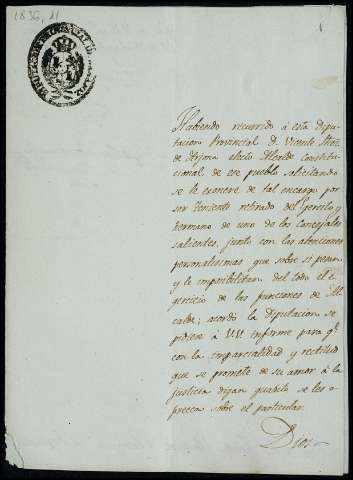 1836, 11
Habiendo recurrido á esta Dipu-
tacion Provincial D. Vicente
de Arjona electo Alcalde Constitu-
cional de ese pueblo solicitando
se le exonere de tal encargo por
ser Teniente retirado del Egercito y
hermano de uno de los Concejales
salientes, junto con las atenciones
personalisimas que sobre si pesan
y le imposibilitan del todo el e-
gercicio de las funciones de Al-
calde; acordo la Diputacion se
pidiese á VV. informe para q.e
con la imparcialidad y rectitud
que se promete de su amor á la
justicia digan quanto se les o-
frezca sobre el particular.
Dios